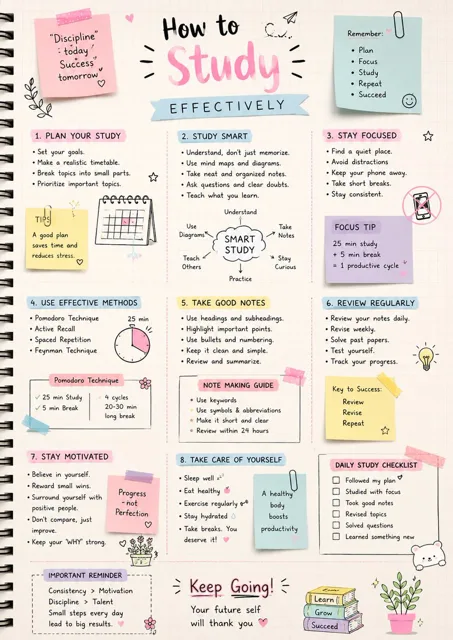 "Discipline"
today
Success
tomorrow
How to
Study
EFFECTIVELY
Remember:
• Plan
• Focus
• Study
• Repeat
• Succeed
1. PLAN YOUR STUDY
• Set your goals.
• Make a realistic timetable.
• Break topics into small parts.
• Prioritize important topics.
TIPS
A good plan
saves time and
reduces stress.
2. STUDY SMART
• Understand, don't just memorize.
• Use mind maps and diagrams.
• Take neat and organized notes.
• Ask questions and clear doubts.
• Teach what you learn.
Understand
Use
Diagrams
Take
Notes
SMART
STUDY
Teach
Others
Stay
Curious
Practice
3. STAY FOCUSED
• Find a quiet place.
• Avoid distractions
• Keep your phone away.
• Take short breaks.
• Stay consistent.
FOCUS TIP
25 min study
+ 5 min break
= 1 productive cycle
4. USE EFFECTIVE METHODS
• Pomodoro Technique
• Active Recall
• Spaced Repetition
• Feynman Technique
25 min
Pomodoro Technique
✓ 25 min Study
✓ 5 min Break
• 4 cycles
20-30 min
long break
5. TAKE GOOD NOTES
• Use headings and subheadings.
• Highlight important points.
• Use bullets and numbering.
• Keep it clean and simple.
• Review and summarize.
NOTE MAKING GUIDE
★ Use keywords
• Use symbols & abbreviations
★ Make it short and clear
★ Review within 24 hours
6. REVIEW REGULARLY
• Review your notes daily.
• Revise weekly.
• Solve past papers.
• Test yourself.
• Track your progress.
Key to Success:
Review
Revise
Repeat
7. STAY MOTIVATED
• Believe in yourself.
• Reward small wins.
• Surround yourself with
positive people.
• Don't compare, just
improve.
• Keep your 'WHY' strong.
Progress
not
Perfection
8. TAKE CARE OF YOURSELF
• Sleep well
• Eat healthy
• Exercise regularly
• Stay hydrated
• Take breaks. You
deserve it!
A healthy
body
boosts
productivity
DAILY STUDY CHECKLIST
Followed my plan
Studied with focus
Took good notes
Revised topics
Solved questions
Learned something new
IMPORTANT REMINDER
Consistency > Motivation
Discipline > Talent
Small steps every day
lead to big results.
Keep Going!
Your future self
will thank you
Learn
Grow
Succeed